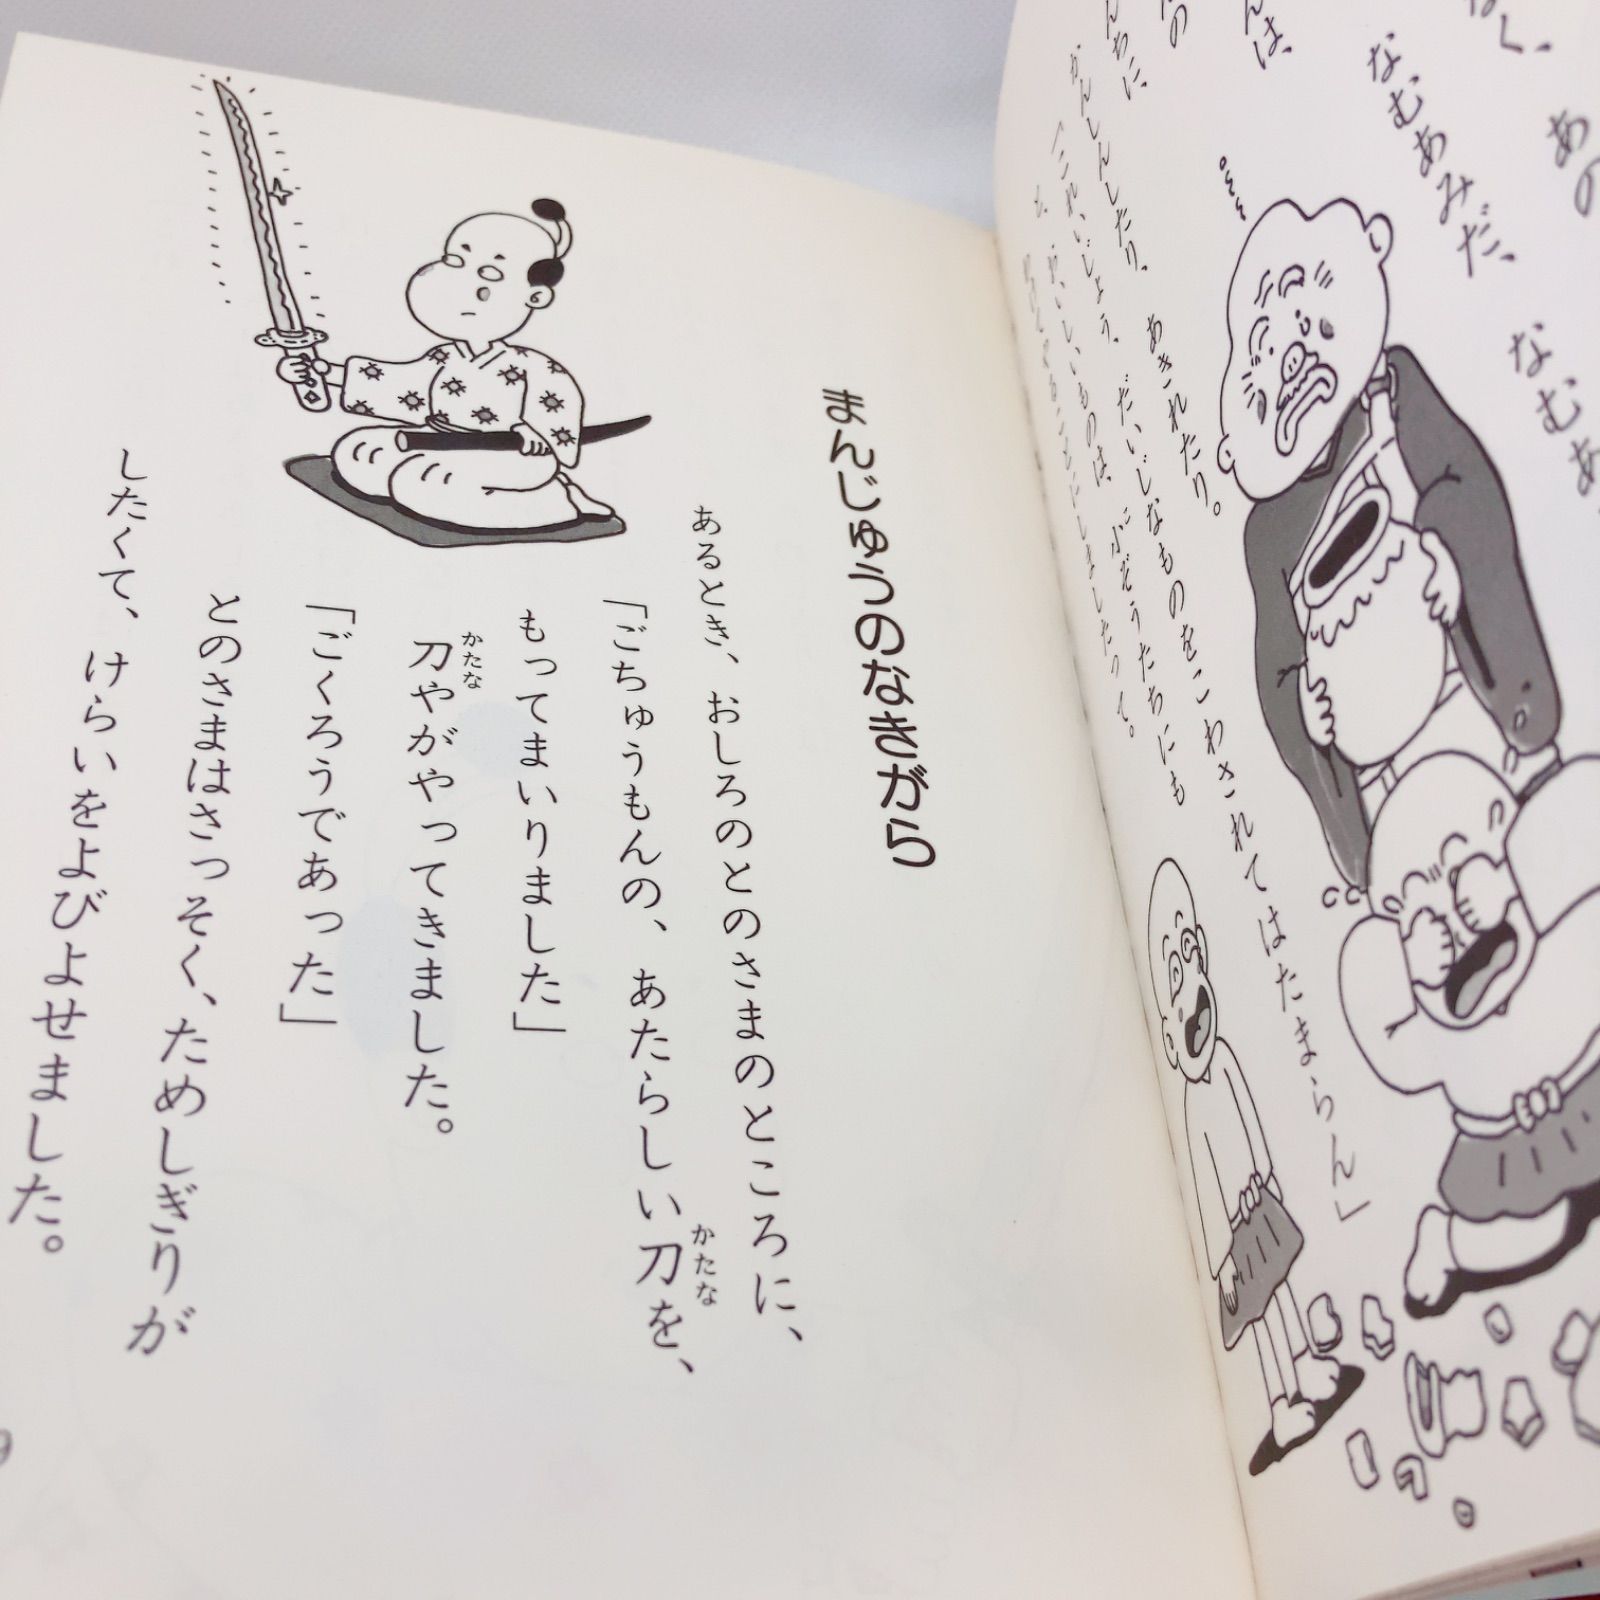 あの
なむあみだ、なむあ
かんしんしたり、あきれたり。
「これいじょう、だいじなものをこわされてはたまらん」
と、おいしいものは、こぞうたちにも
まんじゅうのなきがら
あるとき、おしろのとのさまのところに、
「ごちゅうもんの、あたらしい刀を、
かたな
もってまいりました」
刀やがやってきました。
かたな
「ごくろうであった」
とのさまはさっそく、ためしぎりが
したくて、けらいをよびよせました。